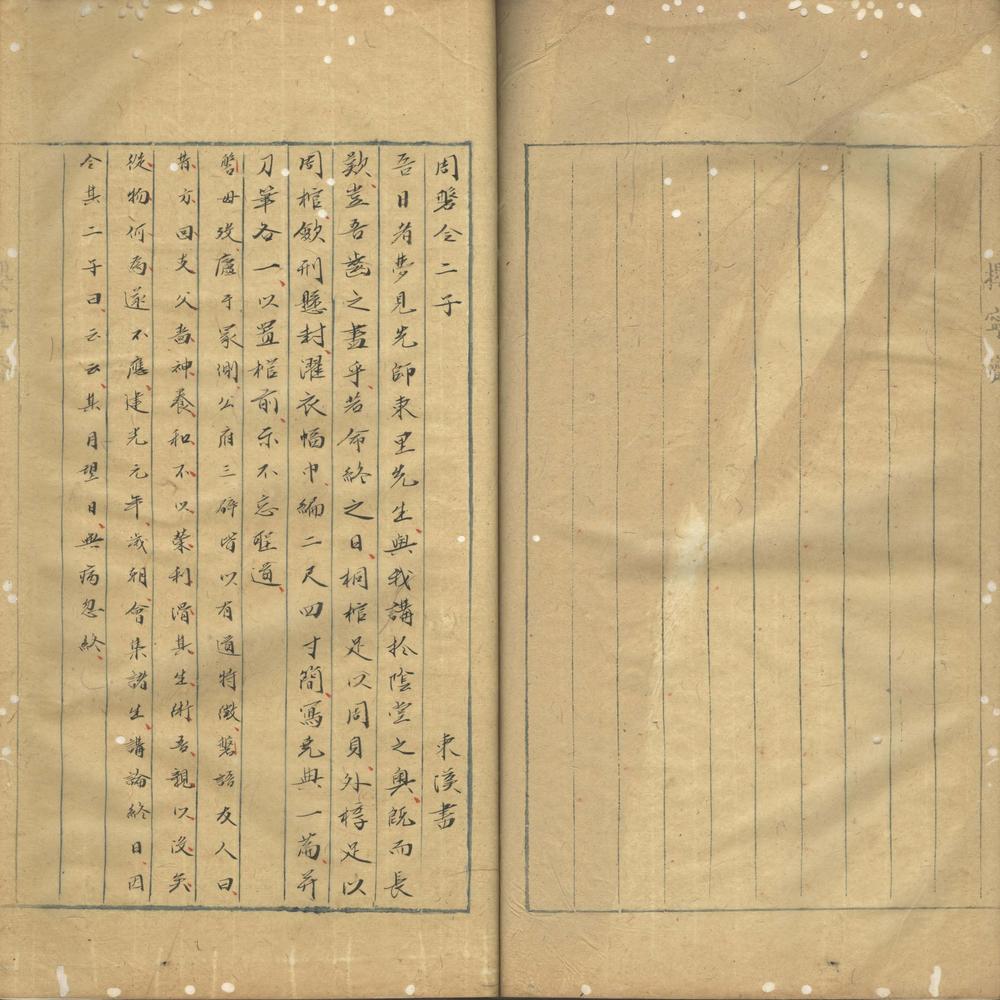 周磐令二子　東漢書
吾日者夢見先師東里先生與我講於陰堂之奧既而長
歎豈吾齒之盡乎若命終之日桐棺足以周身外椁足以
周棺斂形懸封濯衣幅巾編二尺四寸簡寫堯典一篇并
刀筆各一以置棺前示不忘聖道
磐母歿廬于冢側公府三辟皆以有道特徵磐語友人曰
昔方回支父嗇神養和不以榮利滑其生術吾親以沒矣
從物何爲遂不應建光元年歲朝會集諸生講論終日因
令其二子曰云云其月望日無病忽終